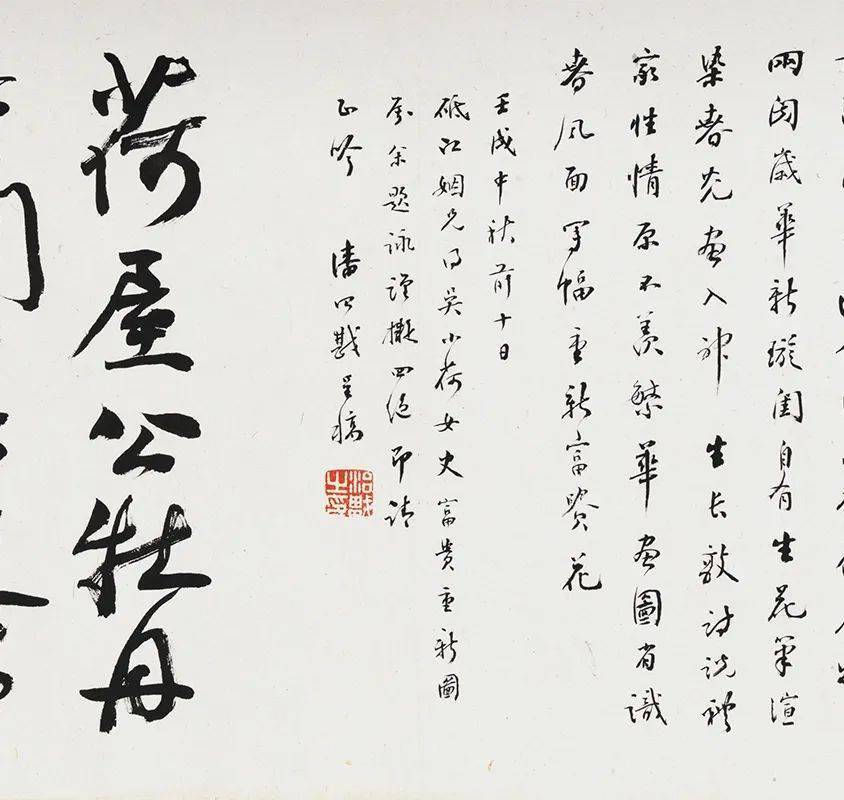 兩歲華新璇閨自有生花筆渲
染春光畫入神 生長敦詩說禮
家性情原不羨繁華畫圖省識
春風面幅重新富貴花
壬戌中秋前十日
砥江姻兄得吳小荷女史富貴重新圖
屬余題詠謹擬四絕即請
正吟 潘呈稿
荷屋公牡丹